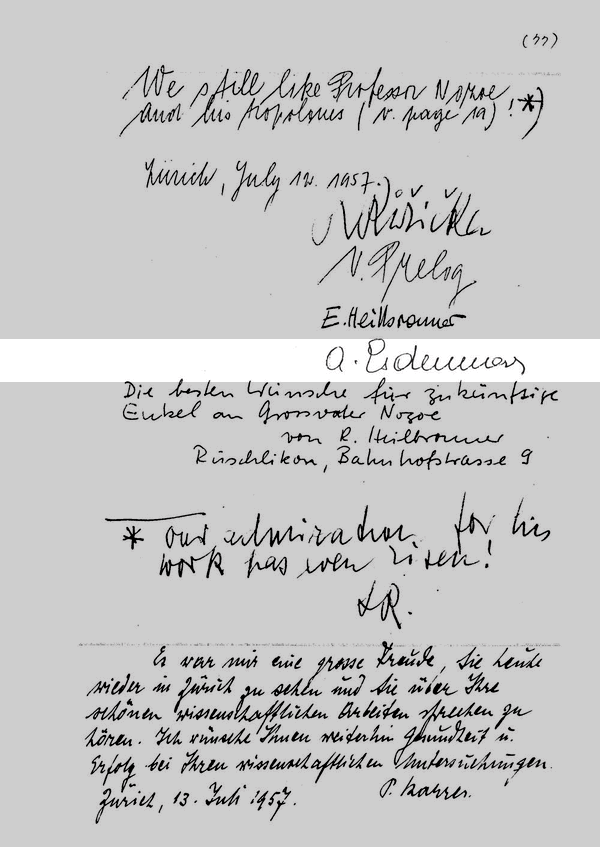 (77)
We still like Professor Nozoe
and his tropolones (v. page 19)! *)
Zürich, July 12. 1957.
Ružička
V. Prelog
E. Heilbronner
A.
Die besten Wünsche für zukünftige
Enkel an Grossvater Nozoe
von R. Heilbronner
Rüschlikon, Bahnhofstrasse 9
* our admiration for his
work has even risen!
LR.
Es war mir eine grosse Freude, Sie heute
wieder in Zürich zu sehen und Sie über Ihre
schönen wissenschaftlichen Arbeiten sprechen zu
hören. Ich wünsche Ihnen weiterhin Gesundheit u.
Erfolg bei Ihren wissenschaftlichen Untersuchungen.
Zürich, 13. Juli 1957. P. Karrer.